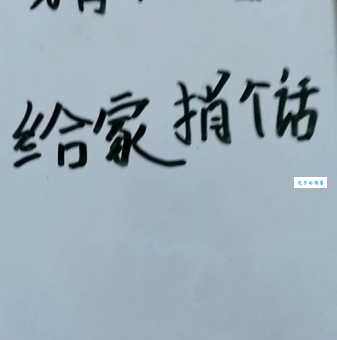 给家捎个话